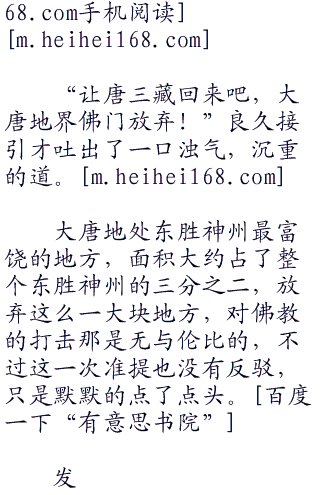 68.com手机阅读]
[m.heihei168.com]
“让唐三藏回来吧，大
唐地界佛门放弃！”良久接
引才吐出了一口浊气，沉重
的道。[m.heihei168.com]
大唐地处东胜神州最富
饶的地方，面积大约占了整
个东胜神州的三分之二，放
弃这么一大块地方，对佛教
的打击那是无与伦比的，不
过这一次准提也没有反驳，
只是默默的点了点头。[百度
一下“有意思书院”]
发